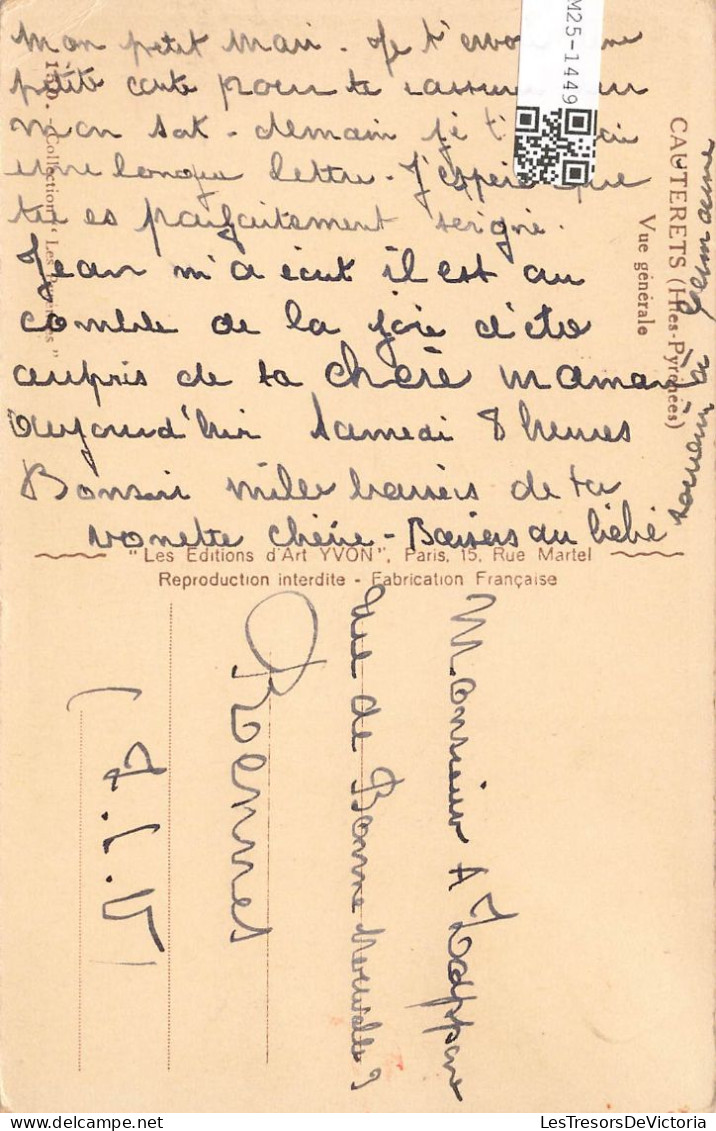 Mon petit Mari. Je t'envoi une
petite carte pour te rassurer sur
mon sort. demain je t'
une longue lettre. J'espère que
tu es parfaitement soigné.
Jean m'a écrit il est au
comble de la joie d'être
auprès de ta chère maman
aujourd'hui Samedi 8 heures
Bonsoir mille baisers de ta
vonette chérie - Baisers du bébé
souvenir à
CAUTERETS (Htes-Pyrénées)
Vue générale
Collection "Les
"Les Editions d'Art YVON", Paris, 15, Rue Martel
Reproduction interdite - Fabrication Française
Monsieur A
rue de Bonne Nouvelle
Rennes
(I.V)
M25-1449
LesTresorsDeVictoria.com